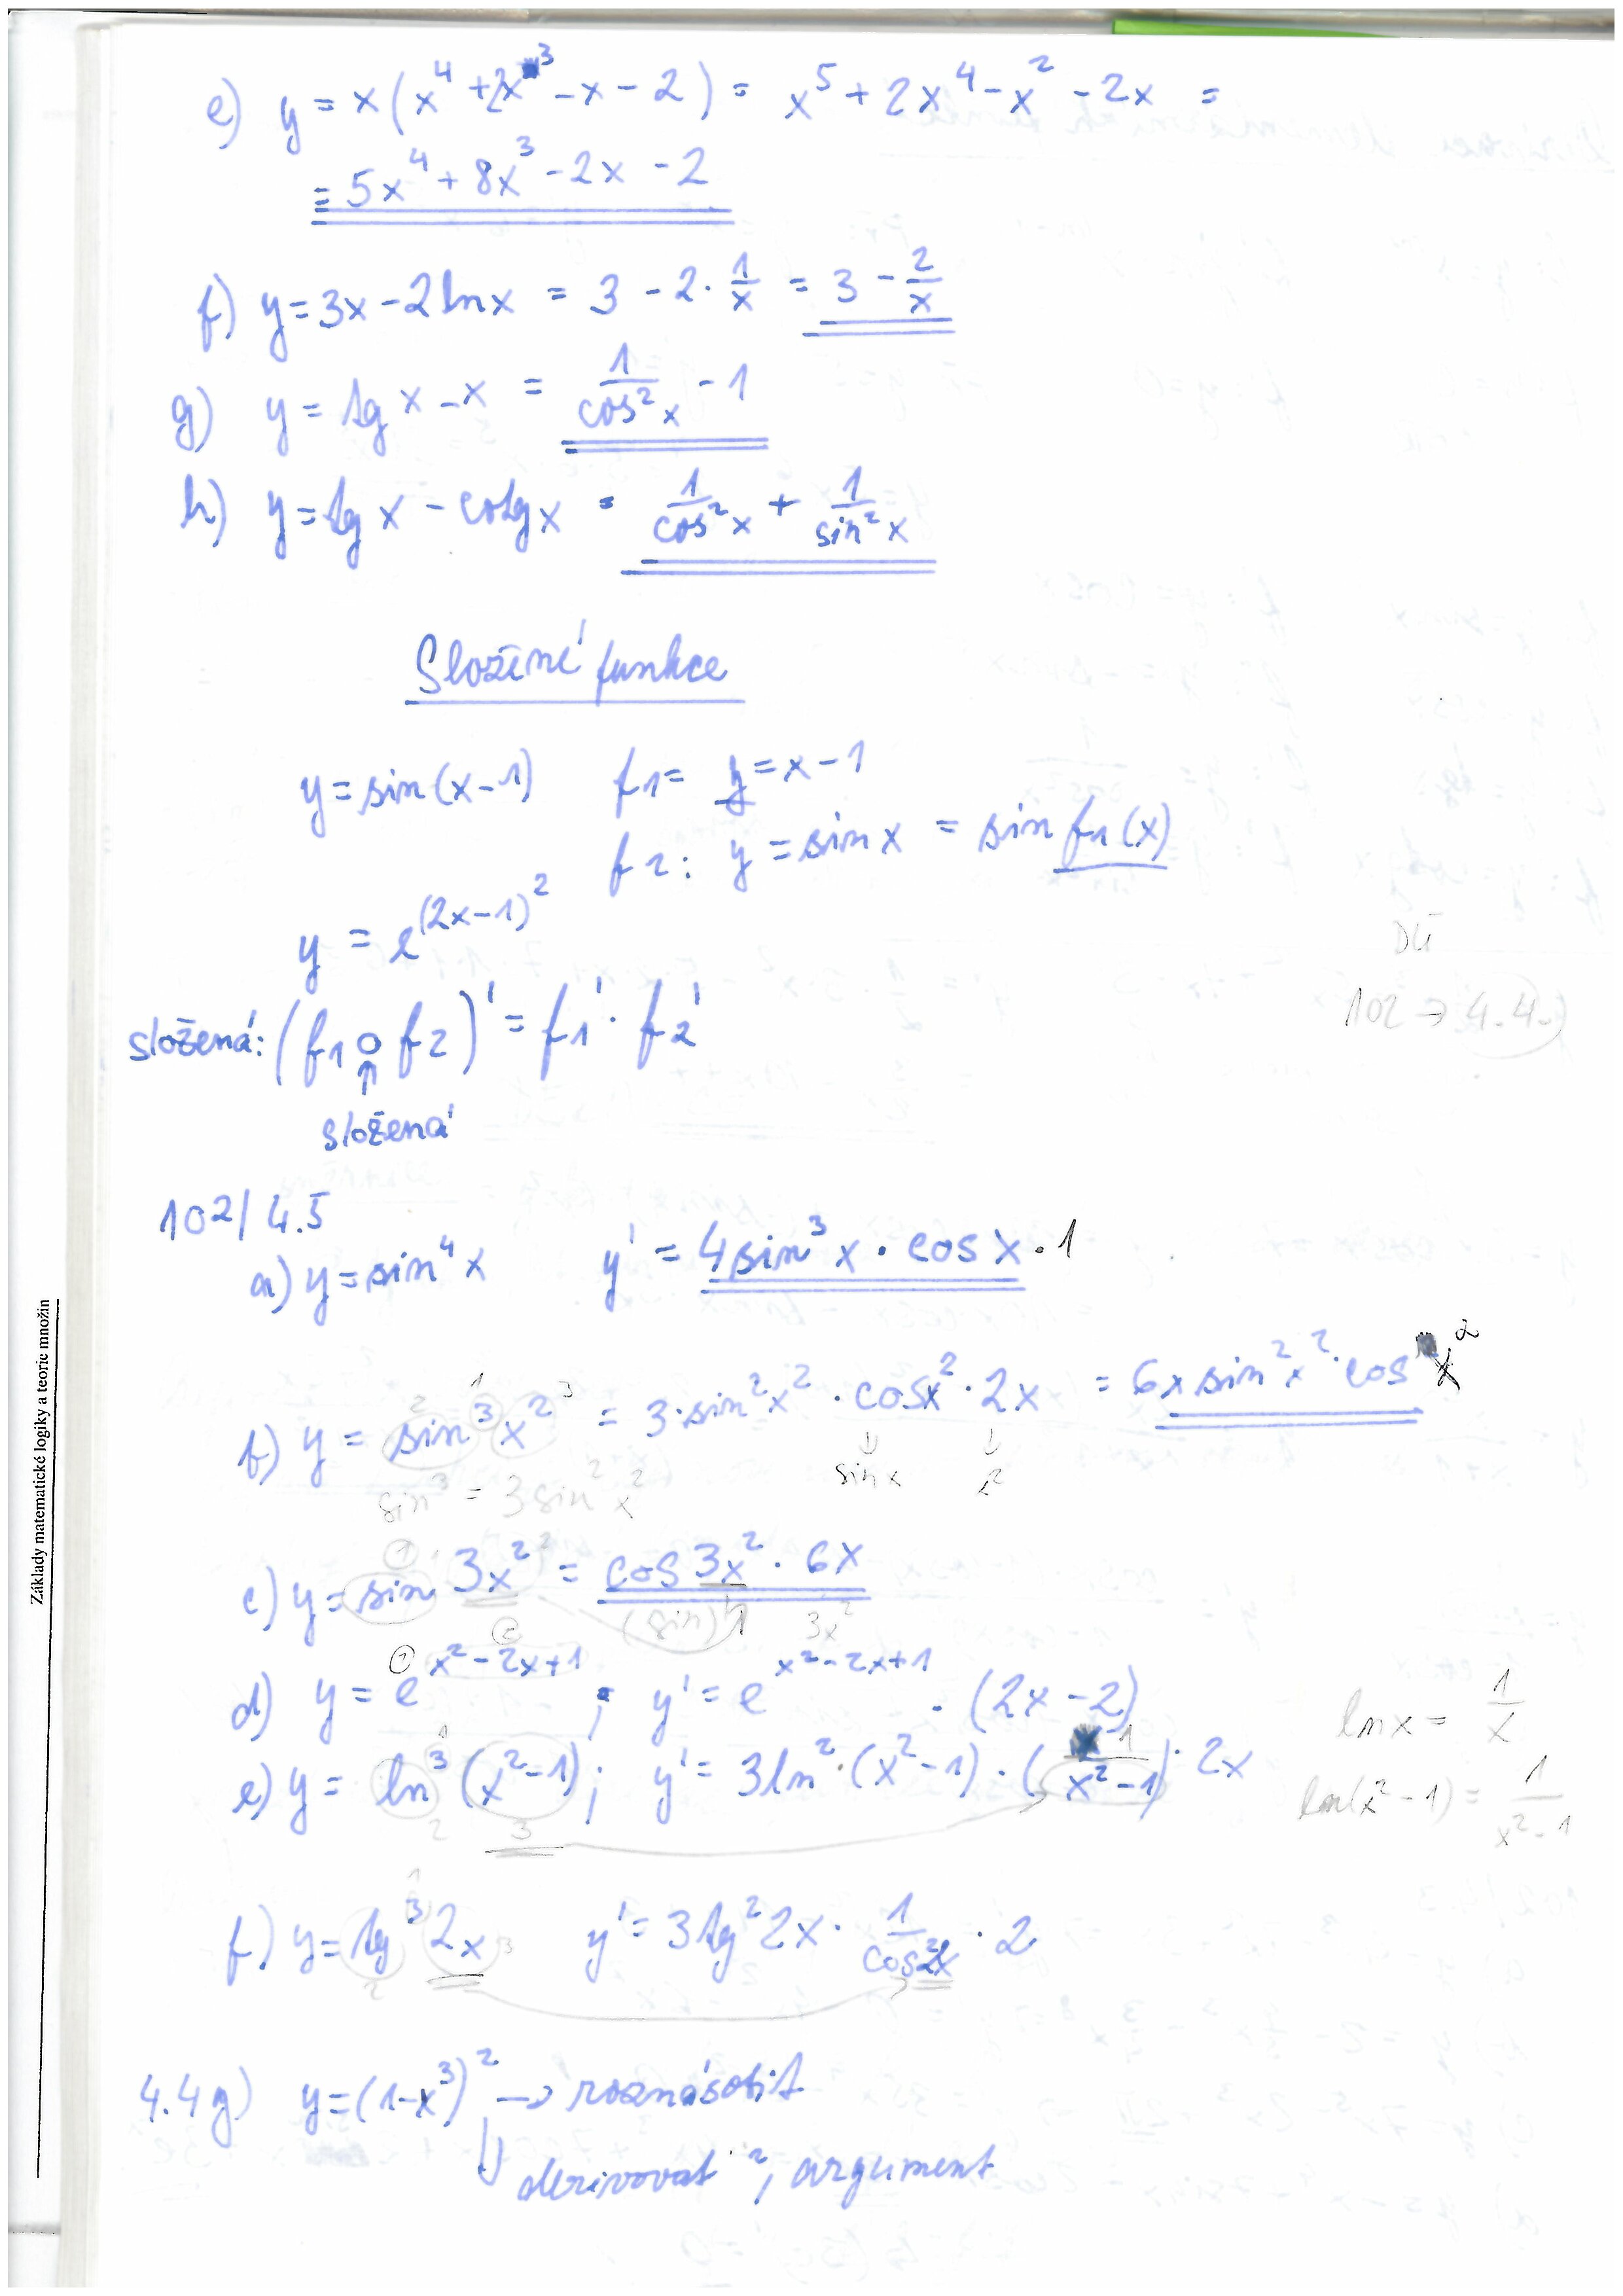 e) y = x(x⁴ + 2x³ - x - 2) = x⁵ + 2x⁴ - x² - 2x =
= 5x⁴ + 8x³ - 2x - 2
f) y = 3x - 2 ln x = 3 - 2 · 1/x = 3 - 2/x
g) y = tg x - x = 1/cos² x - 1
h) y = tg x - cotg x = 1/cos² x + 1/sin² x
Složené funkce
y = sin(x-1) f1= y = x - 1
f2: y = sin x = sin f1(x)
y = e^(2x-1)²
DÚ
102 → 4.4.)
složená: (f1 o f2)' = f1' · f2'
↑
složená
102/ 4.5
a) y = sin⁴ x y' = 4sin³ x · cos x · 1
2 1 3
b) y = sin³ x² = 3·sin² x² · cos x² · 2x = 6x sin² x² · cos x²
↓ ↓
sin x x²
sin³ = 3 sin² x²
1 2
c) y = sin 3x² = cos 3x² · 6x
2 (sin)' 3x²
d) y = e^x²-2x+1 ; y' = e^x²-2x+1 · (2x - 2)
ln x = 1/x
e) y = ln³ (x² - 1); y' = 3ln² · (x² - 1) · (1/x² - 1) · 2x
ln(x² - 1) = 1/x² - 1
2 3
1
f) y = tg³ 2x 3 y' = 3 tg² 2x · 1/cos² 2x · 2
2
4.4 g) y = (1-x³)² → roznásobit
↓ derivovat ², argument
Základy matematické logiky a teorie množin